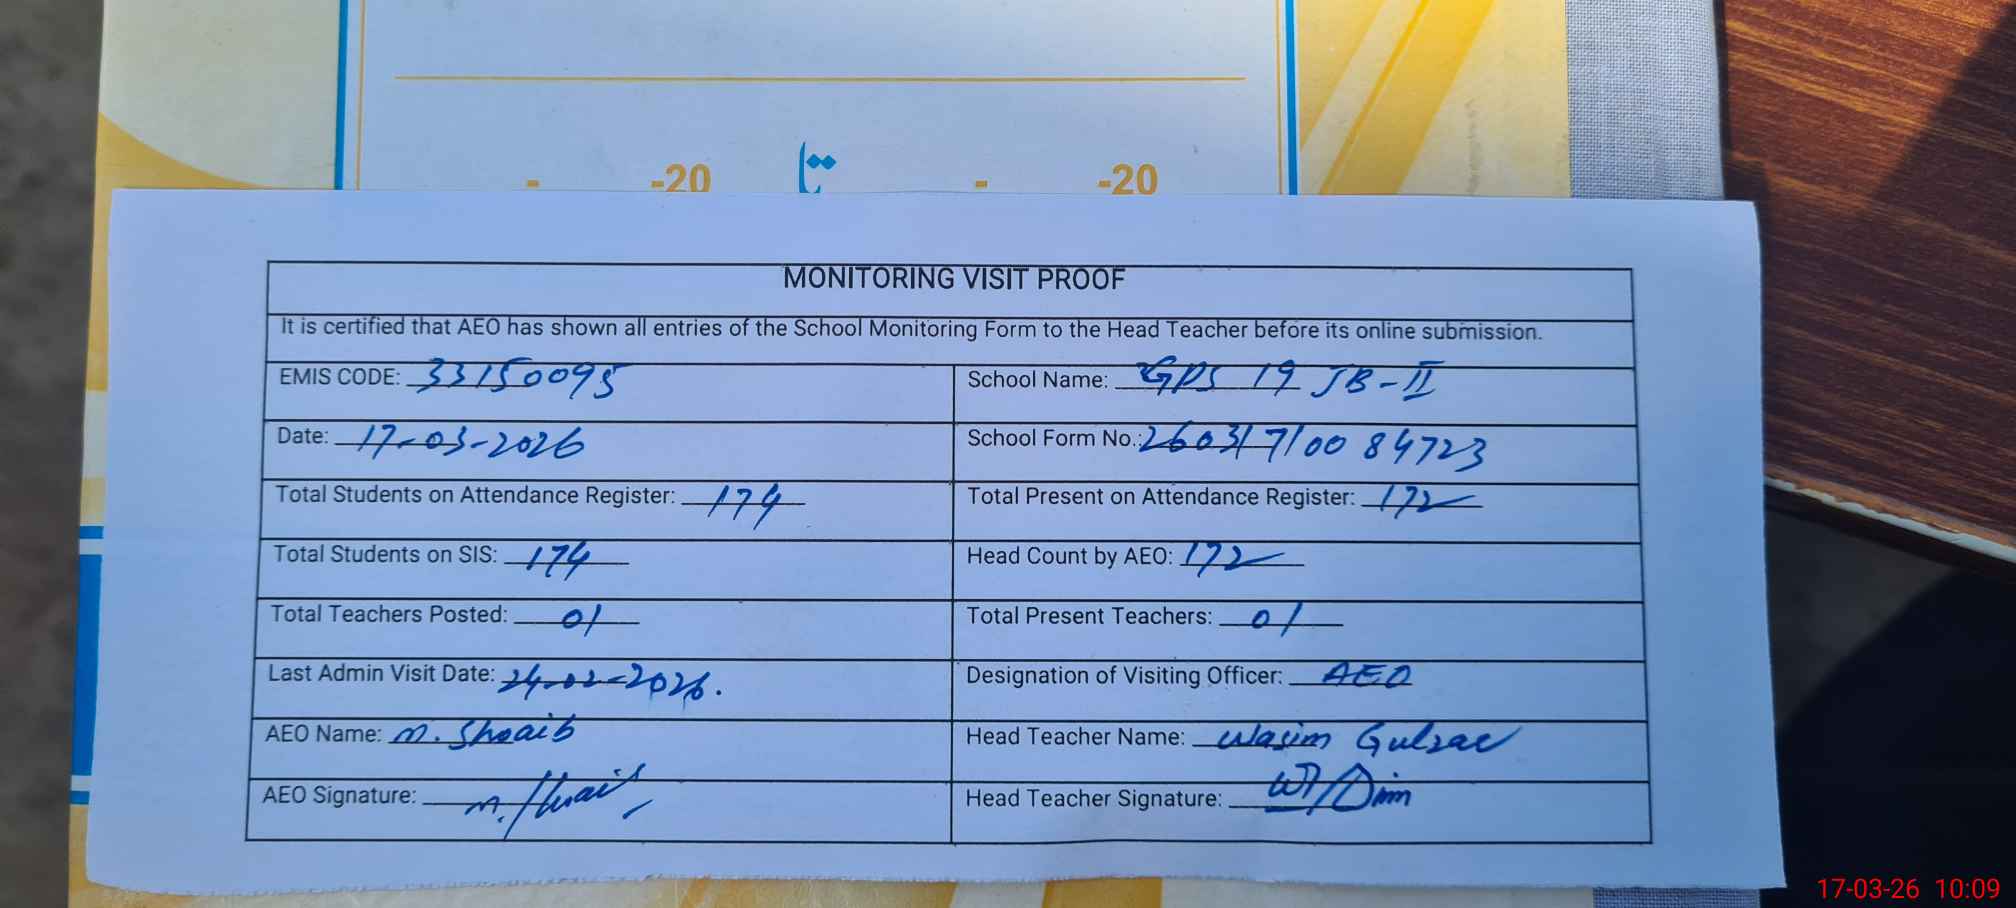 -20 تا -20
MONITORING VISIT PROOF
It is certified that AEO has shown all entries of the School Monitoring Form to the Head Teacher before its online submission.
EMIS CODE: 33150095 School Name: GPS 19 JB-II
Date: 17-03-2026 School Form No.: 26031710084723
Total Students on Attendance Register: 174 Total Present on Attendance Register: 172
Total Students on SIS: 174 Head Count by AEO: 172
Total Teachers Posted: 01 Total Present Teachers: 01
Last Admin Visit Date: 24-02-2026. Designation of Visiting Officer: AEO
AEO Name: M. Shoaib Head Teacher Name: Wasim Gulzar
AEO Signature: M. Shoaib Head Teacher Signature:
17-03-26 10:09